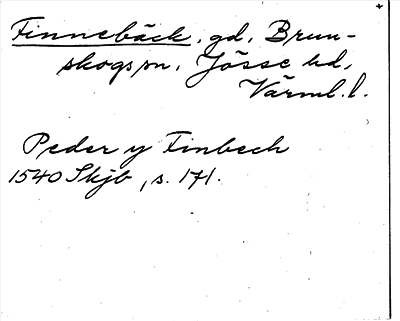 Finnebäck, gd, Brun-
skogs sn, Jösse hd,
Värml. l.
Peder y Finbech
1540 Skjb, s. 171.